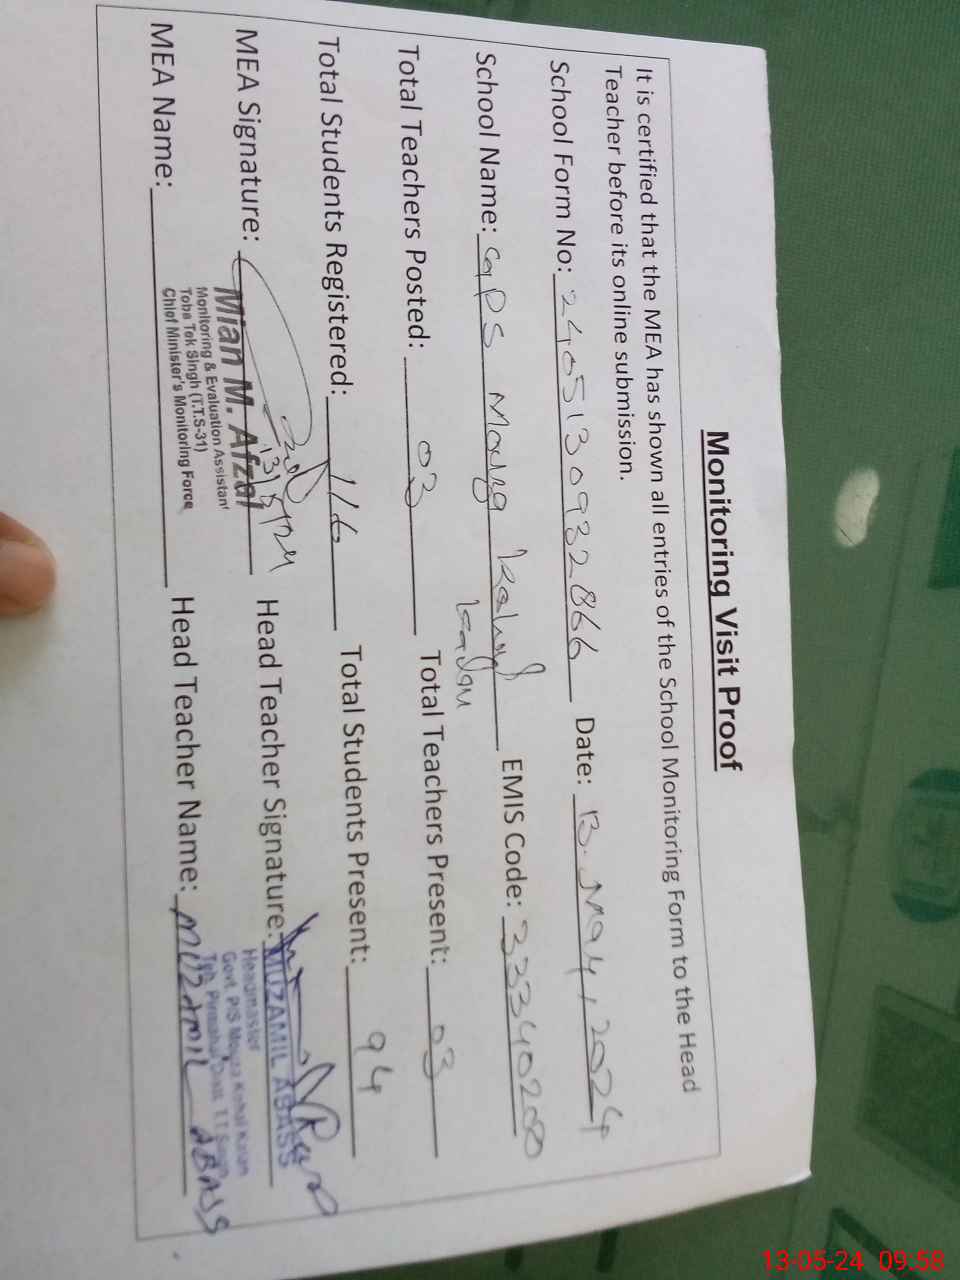 Monitoring Visit Proof
It is certified that the MEA has shown all entries of the School Monitoring Form to the Head
Teacher before its online submission.
School Form No: 2405130932866 Date: 13. May, 2024
School Name: GPS Mouza Kahal EMIS Code: 33340208
Total Teachers Posted: 03 Total Teachers Present: 03
Total Students Registered: 116 Total Students Present: 94
MEA Signature: 13/5/2024 Head Teacher Signature:
Mian M. Afzal
Monitoring & Evaluation Assistant
Toba Tek Singh (T.T.S-31)
Chief Minister's Monitoring Force
MUZAMIL ABASS
Headmaster
Govt. P/S Mouza Kohal Kalan
Teh. Pirmahal Distt. T.T Singh
MEA Name: Head Teacher Name: MUZAMIL ABASS
13-05-24 09:58